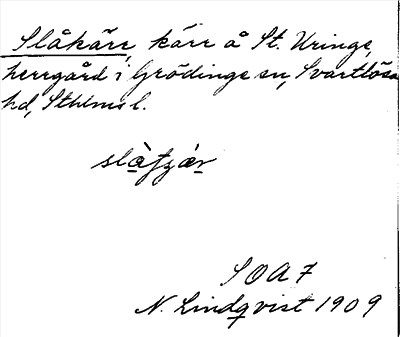 Slåkärr, kärr å St. Uringe,
herrgård i Grödinge sn, Svartlösa
hd, Sthlms l.
SOA 7
N. Lindqvist 1909